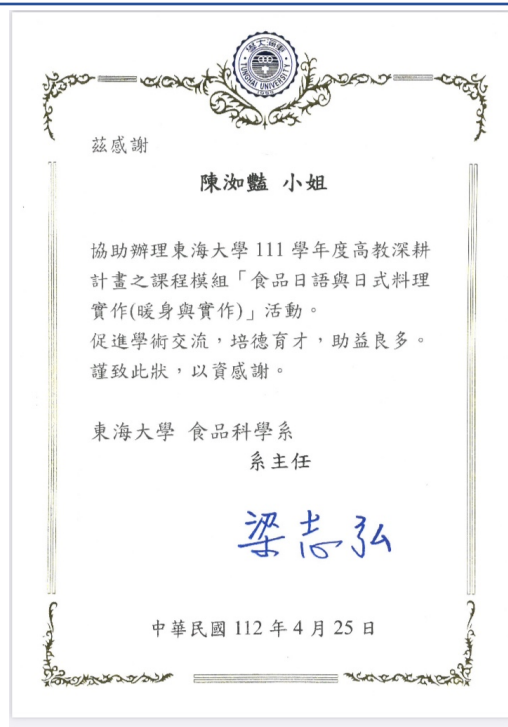 東海大學
TUNGHAI UNIVERSITY
茲感謝
陳洳豔 小姐
協助辦理東海大學 111 學年度高教深耕
計畫之課程模組「食品日語與日式料理
實作(暖身與實作)」活動。
促進學術交流，培德育才，助益良多。
謹致此狀，以資感謝。
東海大學 食品科學系
系主任
梁志弘
中華民國 112 年 4 月 25 日